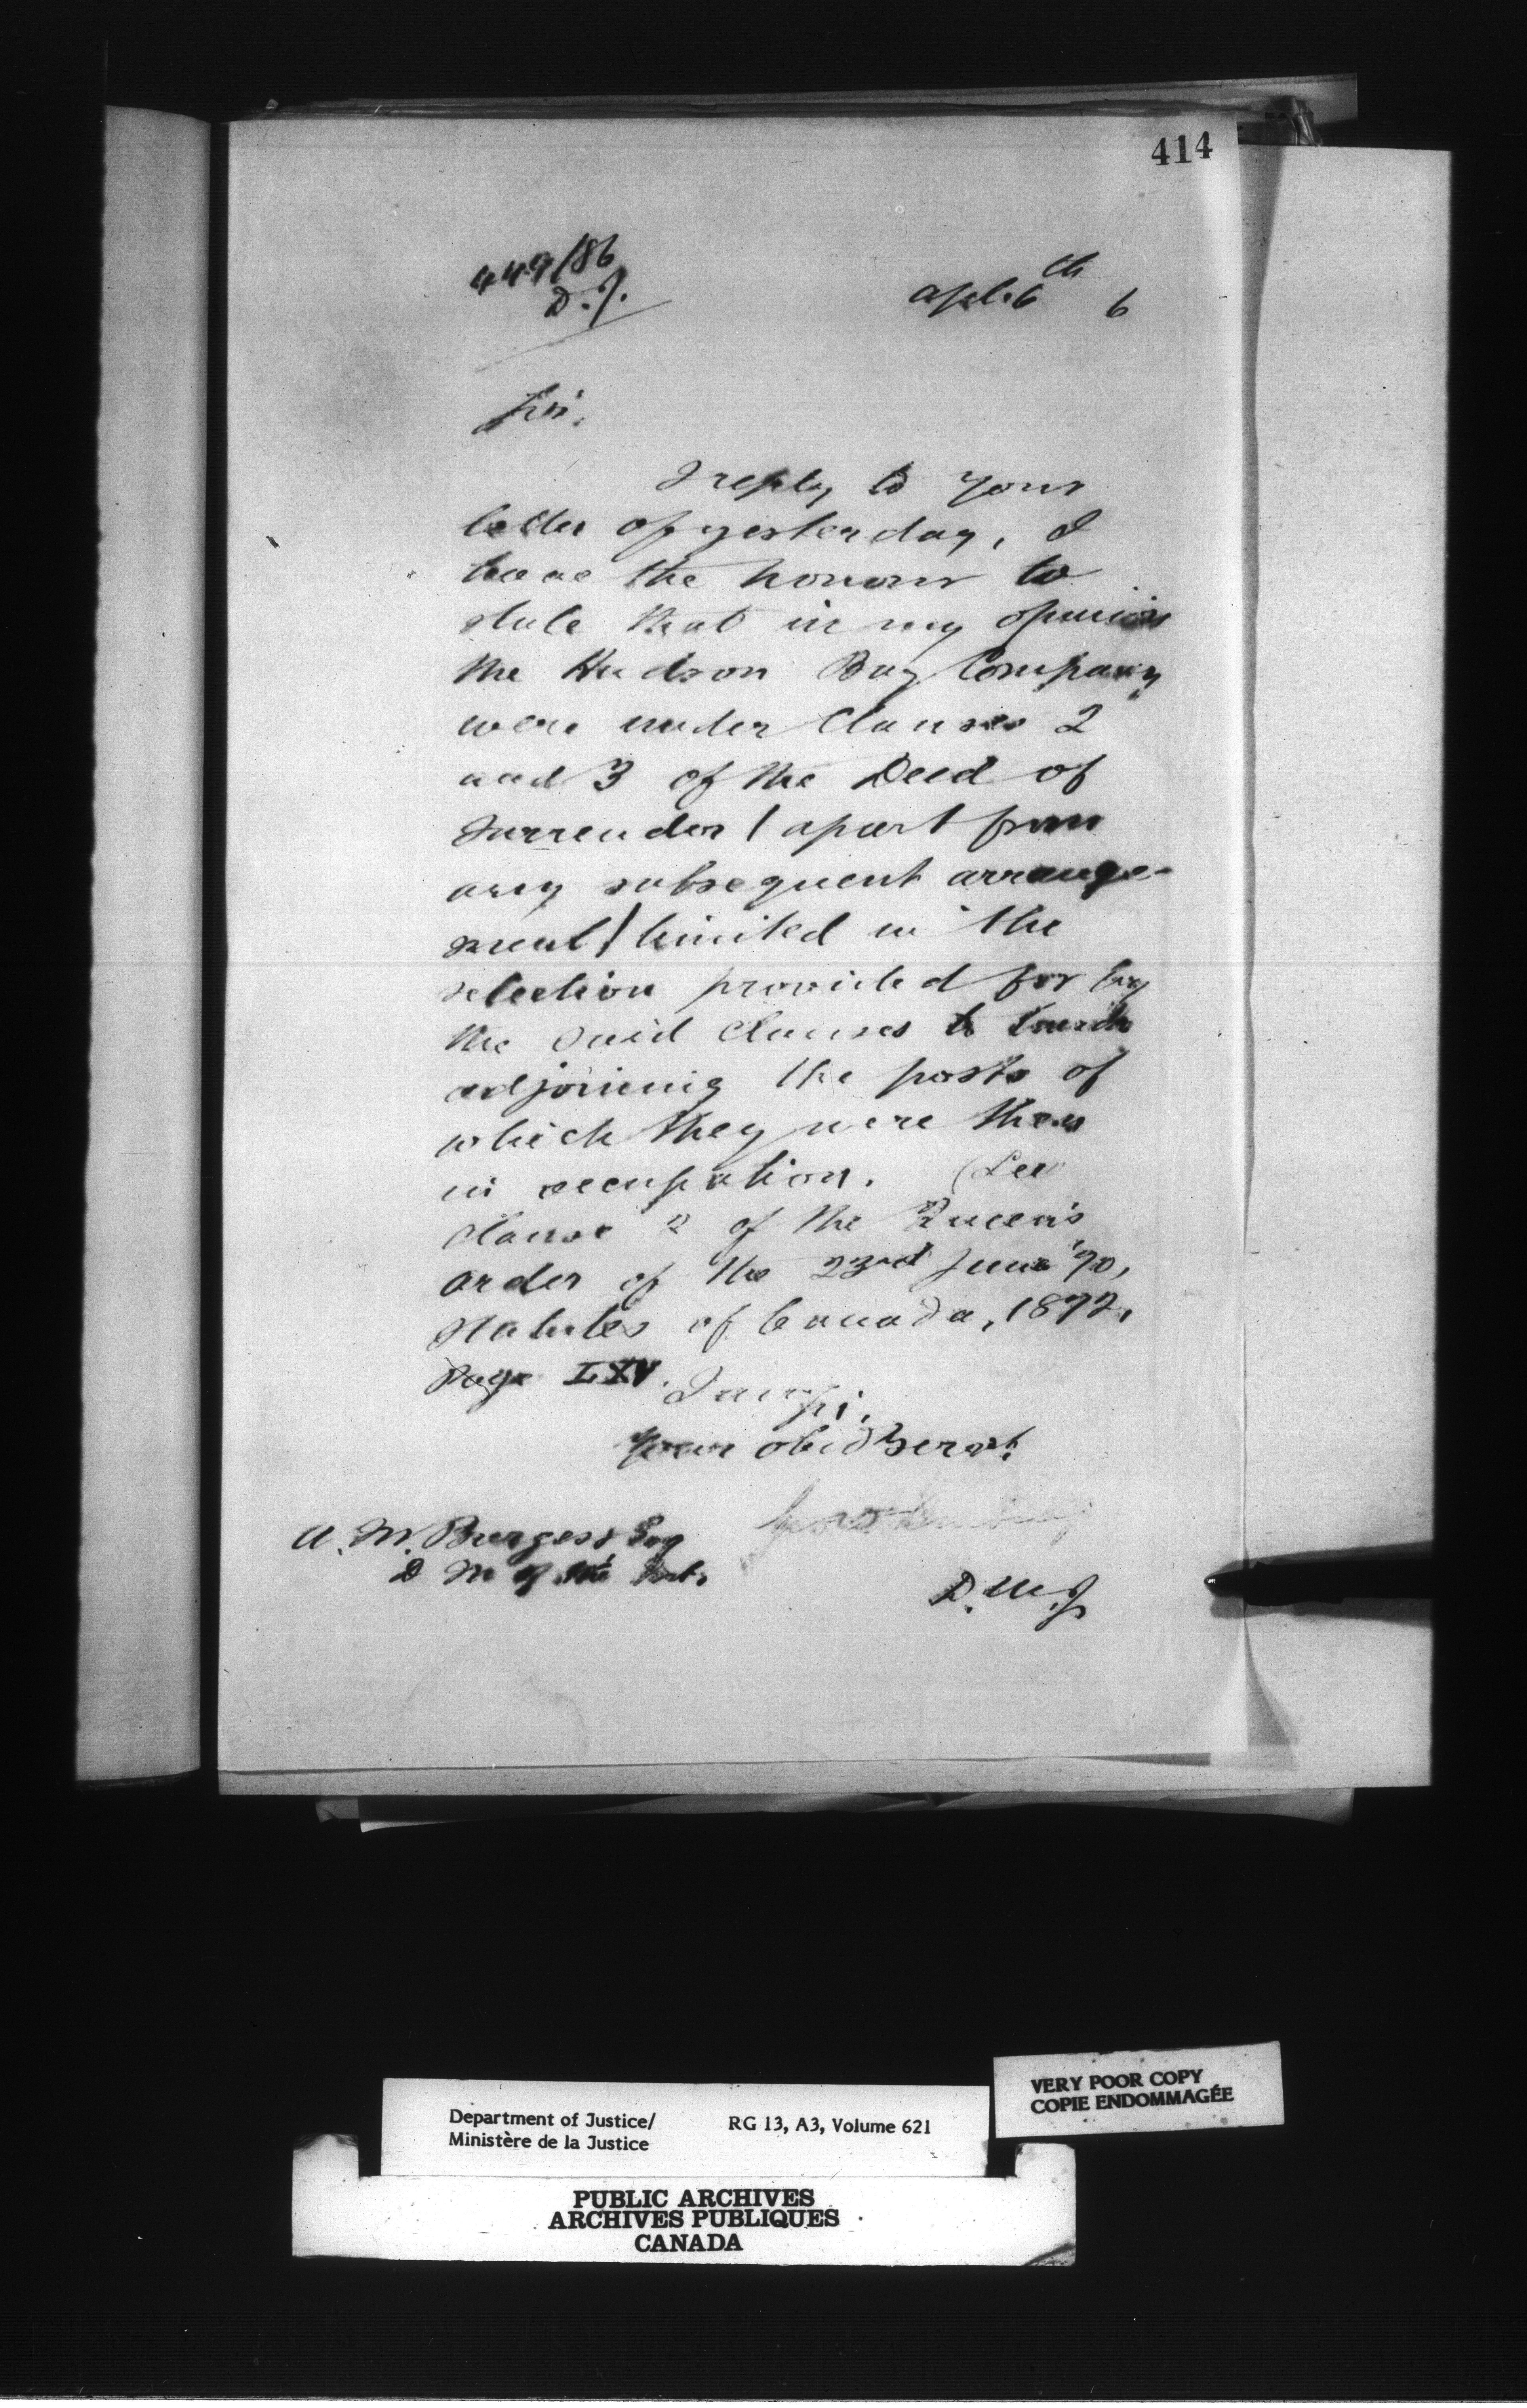 414
449/86
D.J.
Apl. 6th 6
Sir,
I reply to your
letter of yesterday, I
have the honour to
state that in my opinion
the Hudson Bay Company
were under Clauses 2
and 3 of the Deed of
Surrender (apart from
any subsequent arrange-
ment) limited in the
selection provided for by
the said Clauses to lands
adjoining the posts of
which they were then
in occupation. (See
Clause 2 of the Queen's
Order of the 23rd June '70,
Statutes of Canada, 1872,
Page LXV.
I am, Sir,
Your obed Servt.
A. M. Burgess Esq
D M of the Int.
D.M.J
VERY POOR COPY
COPIE ENDOMMAGÉE
Department of Justice/ RG 13, A3, Volume 621
Ministère de la Justice
PUBLIC ARCHIVES
ARCHIVES PUBLIQUES
CANADA